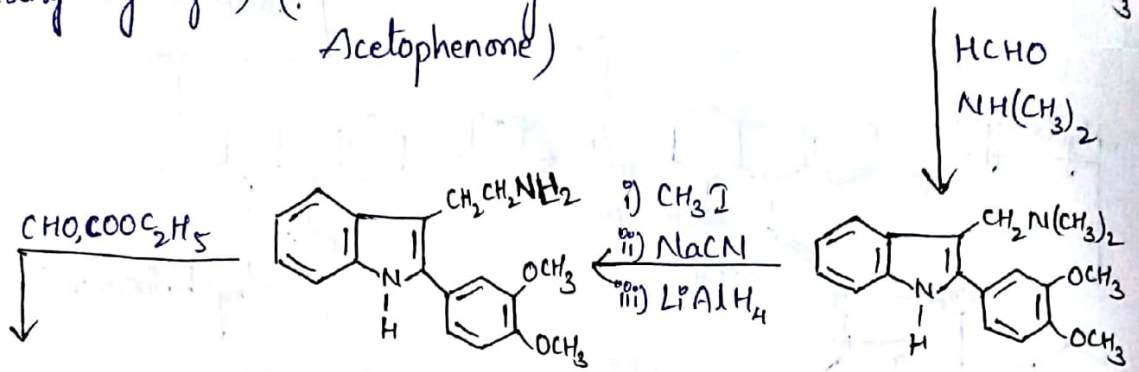 Acetophenone)
3
HCHO
NH(CH₃)₂
CHO,COOC₂H₅
CH₂CH₂NH₂
N
H
OCH₃
OCH₃
i) CH₃I
ii) NaCN
iii) LiAlH₄
CH₂N(CH₃)₂
N
H
OCH₃
OCH₃